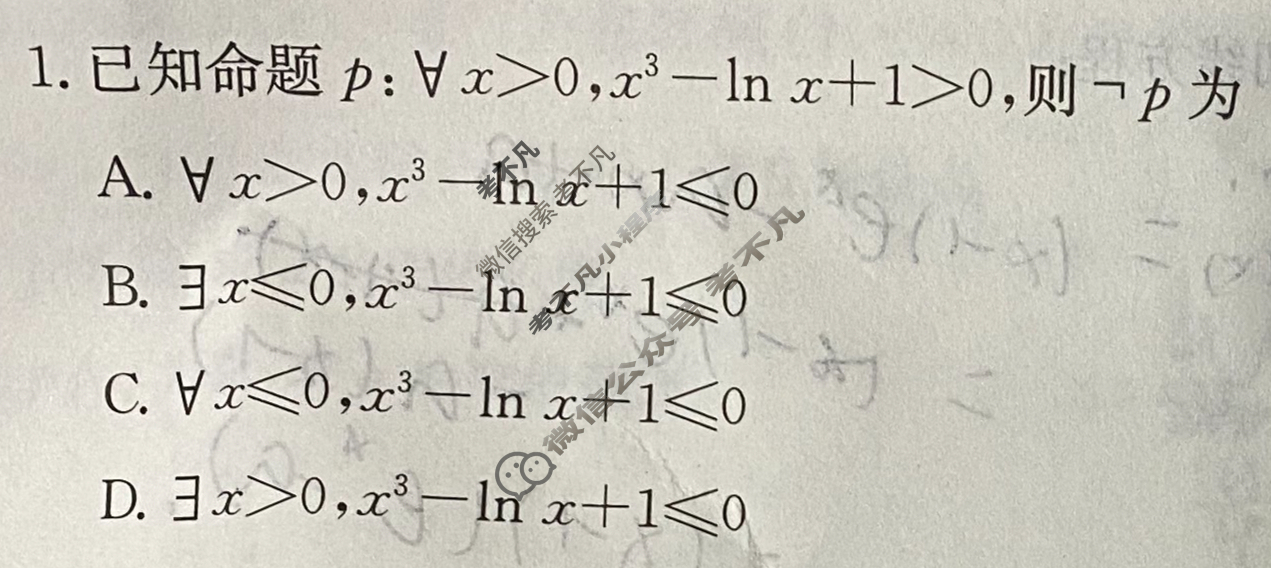 1. 已知命题 p: ∀ x>0, x³-ln x+1>0, 则 ¬p 为
A. ∀ x>0, x³-ln x+1≤0
B. ∃ x≤0, x³-ln x+1≤0
C. ∀ x≤0, x³-ln x+1≤0
D. ∃ x>0, x³-ln x+1≤0
考不凡
微信搜索 考不凡
考不凡小程序
微信公众号 考不凡